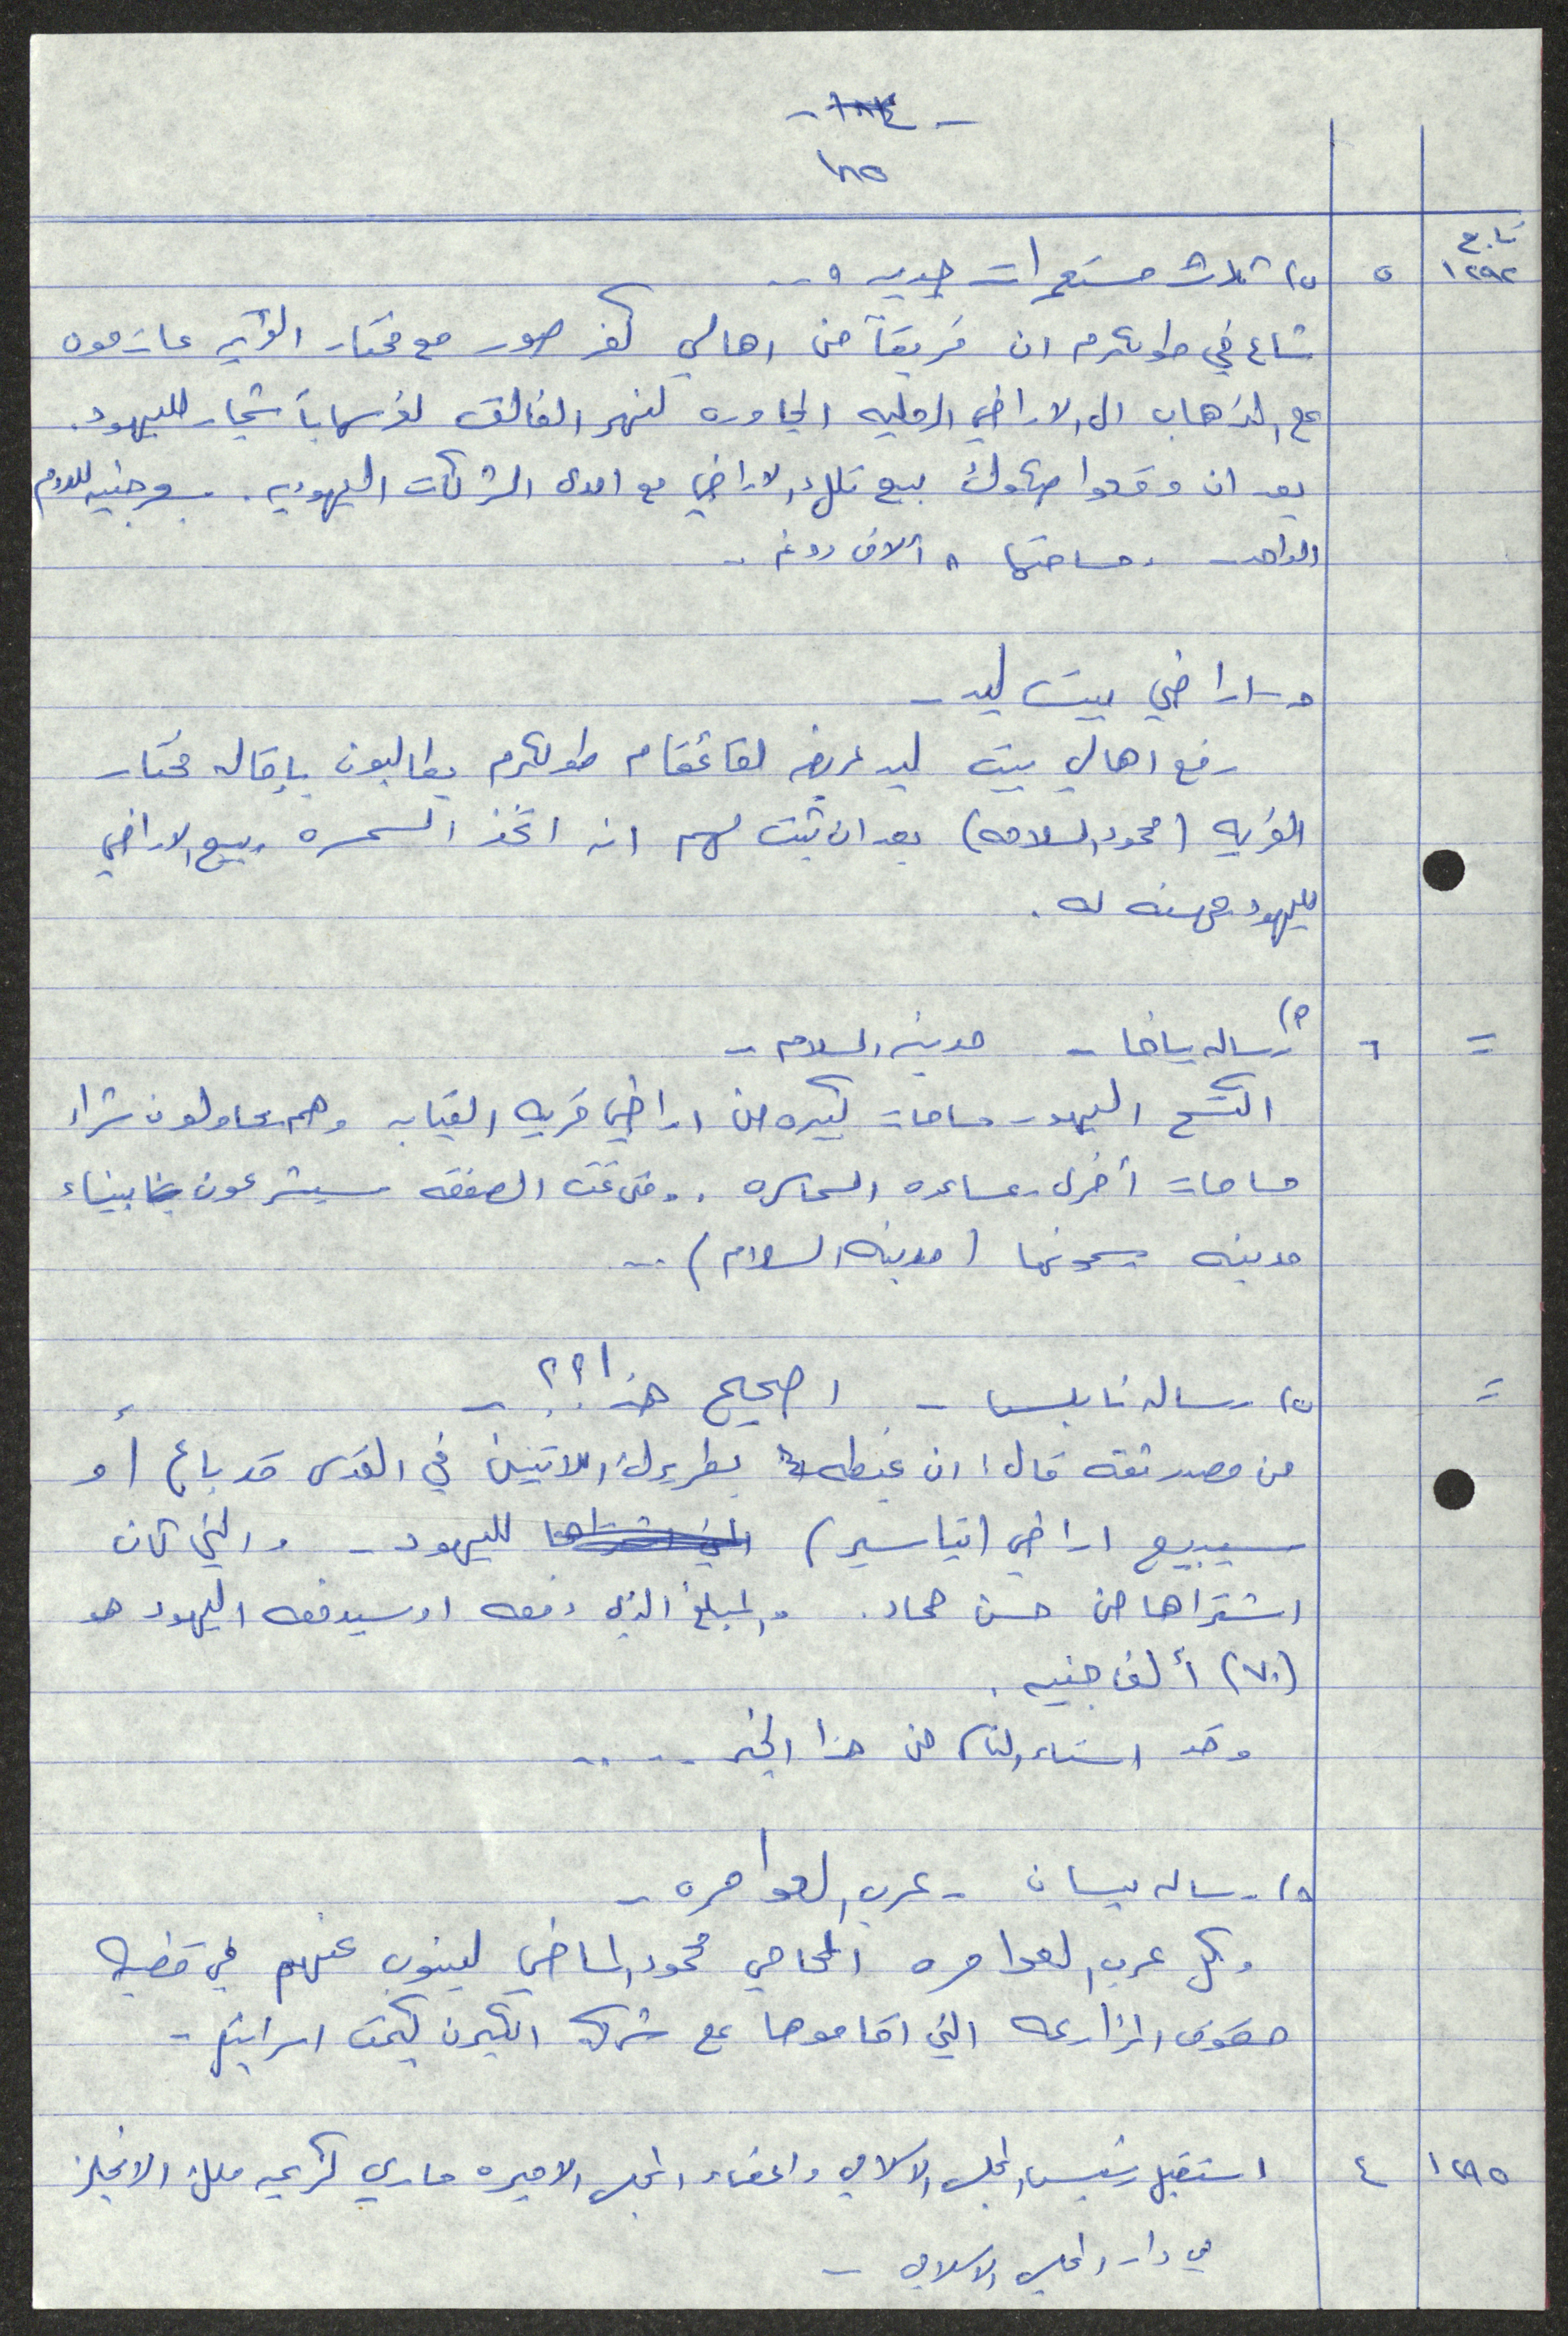 - ١٨٤ -
١٨٥
تابع
١٢٩٢ ٥ ٥) ثلاث مستعمرات جديده و ..
شاع في طولكرم ان فريقاً من اهالي كفر صور مع مختار القريه عازمون
على الذهاب الى الاراضي الرمليه المجاوره لنهر الفالق لغرسها بأشجار لليهود.
بعد ان وقعوا صكوك بيع تلك الاراضي مع احدى الشركات اليهوديه. بسعر جنيه للدونم
الواحد - ومساحتها ٨ آلاف دونم ..
و - اراضي بيت ليد -
رفع اهالي بيت ليد عريضه لقائمقام طولكرم يطالبون بإقاله مختار
القريه (محمود السلامه) بعد ان ثبت لهم انه اتخذ السمسره وبيع الاراضي
لليهود مهنه له .
= ٦ ٢) رساله يافا - مدينه السلام -
اكتسح اليهود مساحات كبيره من اراضي قريه القبابه وهم يحاولون شراء
مساحات أخرى بمساعده السماسره .. ومتى تمت الصفقه سيشرعون ببناء
مدينه يسمونها (مدينه السلام) ..
= رساله نابلس - اصحيح هذا ؟؟ -
من مصدر ثقه قال: ان غبطه بطريرك اللاتين في القدس قد باع أو
سيبيع اراضي (تياسير) التي اشتراها لليهود - والتي كان
اشتراها من حسن حماد . والمبلغ الذي دفعه او سيدفعه اليهود هو
(٧٠) ألف جنيه .
وقد استاء الناس من هذا الخبر ....
رساله بيسان - عرب العوامره -
وكل عرب العوامره المحامي محمود الماضي لينوب عنهم في قضيه
حقوق المزارعه التي اقاموها على شركه الكيرن كيمت اسرائيل -
١٢٩٥ ٤ استقبل رئيس المجلس الاسلامي واعضاء المجلس الاميره ماري كريمه ملك الانجليز
في دار المجلس الاسلامي -